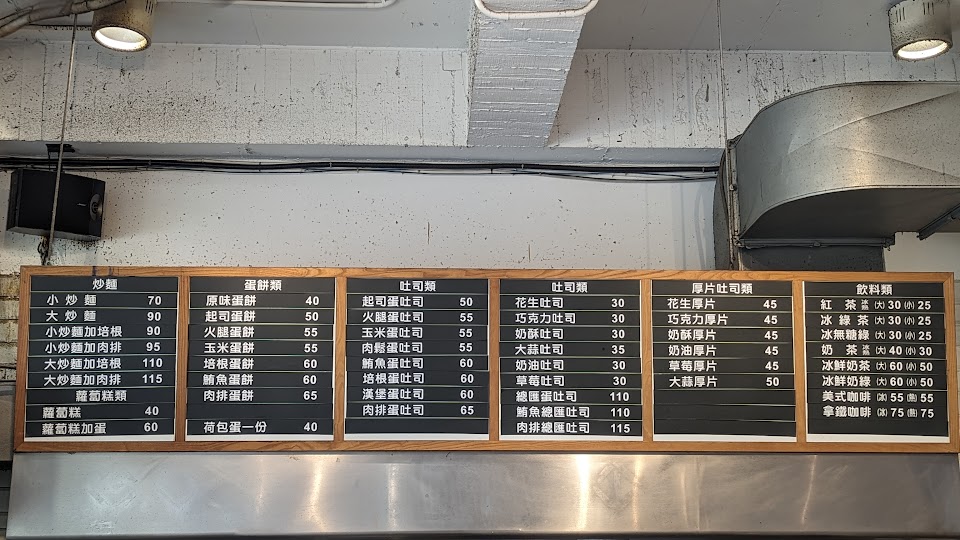 炒麵
小炒麵 70
大炒麵 90
小炒麵加培根 90
小炒麵加肉排 95
大炒麵加培根 110
大炒麵加肉排 115
蘿蔔糕類
蘿蔔糕 40
蘿蔔糕加蛋 60
蛋餅類
原味蛋餅 40
起司蛋餅 50
火腿蛋餅 55
玉米蛋餅 55
培根蛋餅 60
鮪魚蛋餅 60
肉排蛋餅 65
荷包蛋一份 40
吐司類
起司蛋吐司 50
火腿蛋吐司 55
玉米蛋吐司 55
肉鬆蛋吐司 55
鮪魚蛋吐司 60
培根蛋吐司 60
漢堡蛋吐司 60
肉排蛋吐司 65
吐司類
花生吐司 30
巧克力吐司 30
奶酥吐司 30
大蒜吐司 35
奶油吐司 30
草莓吐司 30
總匯蛋吐司 110
鮪魚總匯吐司 110
肉排總匯吐司 115
厚片吐司類
花生厚片 45
巧克力厚片 45
奶酥厚片 45
奶油厚片 45
草莓厚片 45
大蒜厚片 50
飲料類
紅茶 冰熱 (大) 30 (小) 25
冰綠茶 (大) 30 (小) 25
冰無糖綠 (大) 30 (小) 25
奶茶 冰熱 (大) 40 (小) 30
冰鮮奶茶 (大) 60 (小) 50
冰鮮奶綠 (大) 60 (小) 50
美式咖啡 (冰) 55 (熱) 55
拿鐵咖啡 (冰) 75 (熱) 75